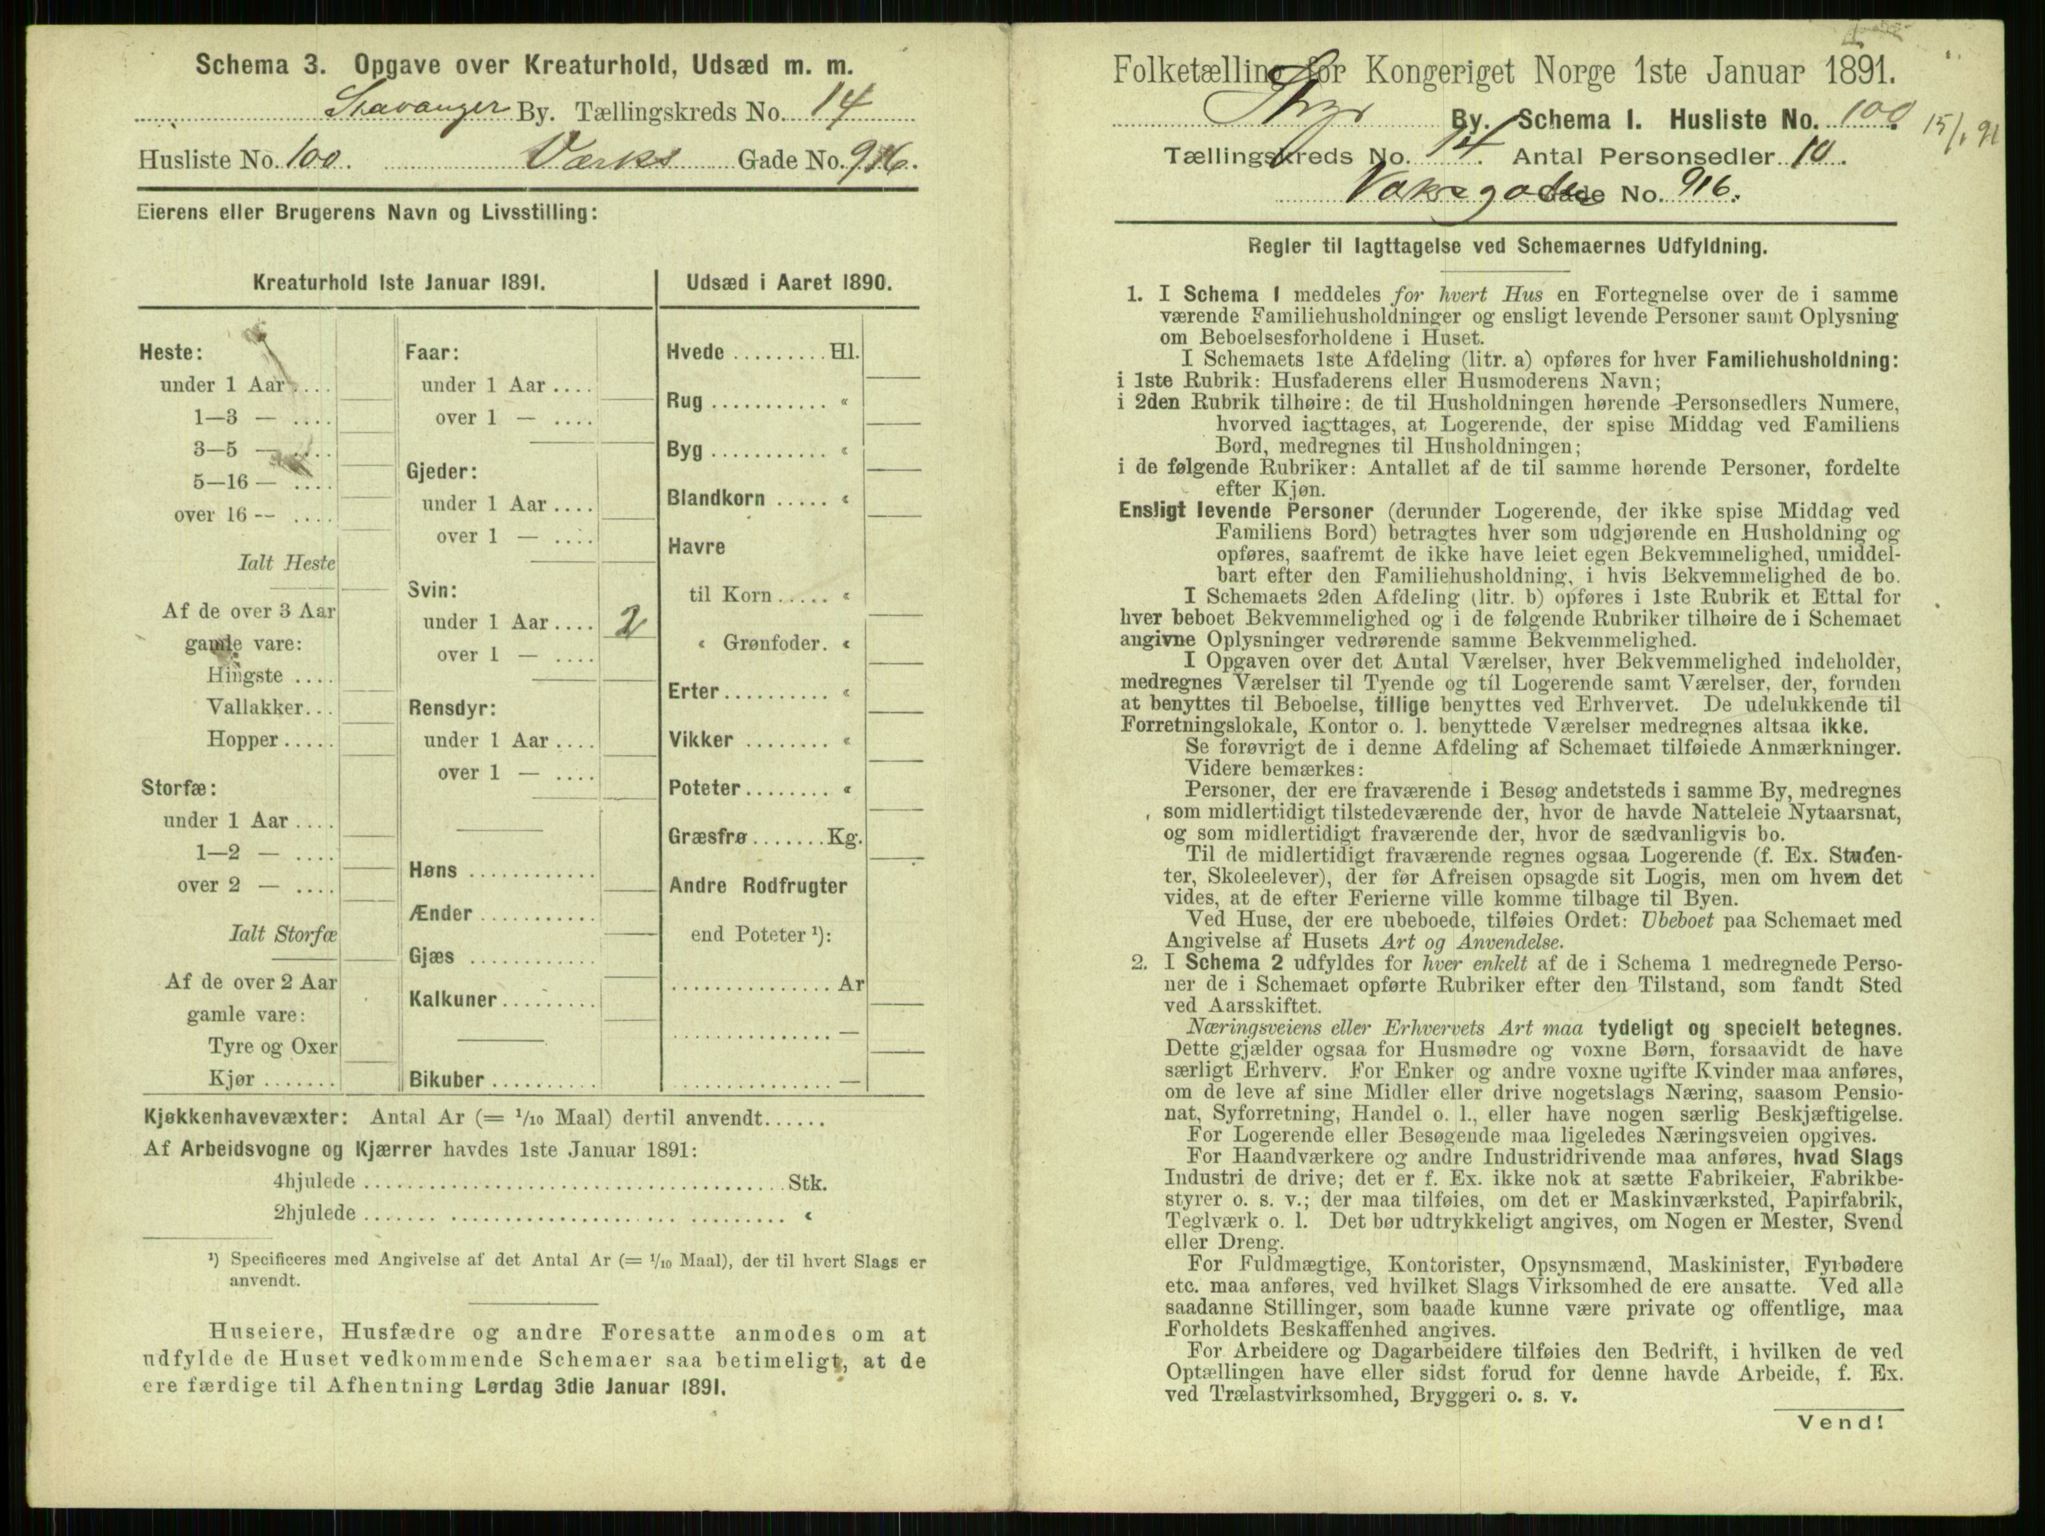 Schema 3. Opgave over Kreaturhold, Udsæd m. m.
Stavanger By. Tællingskreds No. 14
Husliste No. 100. Værks Gade No. 916.
Eierens eller Brugerens Navn og Livsstilling:
Kreaturhold 1ste Januar 1891.
Heste:
under 1 Aar ....
1—3 — ....
3—5 — ....
5—16 — ....
over 16 -- ....
Ialt Heste
Af de over 3 Aar
gamle vare:
Hingste ....
Vallakker...
Hopper.....
Storfæ:
under 1 Aar ....
1—2 — ....
over 2 — ....
Ialt Storfæ
Af de over 2 Aar
gamle vare:
Tyre og Oxer
Kjør .......
Faar:
under 1 Aar ....
over 1 — ....
Gjeder:
under 1 Aar ....
over 1 — ....
Svin:
under 1 Aar .... 2
over 1 — ....
Rensdyr:
under 1 Aar ....
over 1 — ....
Høns ............
Ænder ...........
Gjæs ............
Kalkuner.........
Bikuber ..........
Udsæd i Aaret 1890.
Hvede .........Hl.
Rug ........... «
Byg ........... «
Blandkorn ..... «
Havre
til Korn ..... «
« Grønfoder. «
Erter.......... «
Vikker ........ «
Poteter........ «
Græsfrø.......Kg.
Andre Rodfrugter
end Poteter ¹):
............... Ar
............... —
............... —
Kjøkkenhavevæxter: Antal Ar (= 1/10 Maal) dertil anvendt......
Af Arbeidsvogne og Kjærrer havdes 1ste Januar 1891:
4hjulede ........................................Stk.
2hjulede ........................................ «
¹) Specificeres med Angivelse af det Antal Ar (= 1/10 Maal), der til hvert Slags er
anvendt.
Huseiere, Husfædre og andre Foresatte anmodes om at
udfylde de Huset vedkommende Schemaer saa betimeligt, at de
ere færdige til Afhentning Lørdag 3die Januar 1891.
Folketælling for Kongeriget Norge 1ste Januar 1891.
By. Schema I. Husliste No. 100. 15/1 91
Tællingskreds No. 14. Antal Personsedler 10.
Gade No. 916.
Regler til Iagttagelse ved Schemaernes Udfyldning.
1. I Schema I meddeles for hvert Hus en Fortegnelse over de i samme
værende Familiehusholdninger og ensligt levende Personer samt Oplysning
om Beboelsesforholdene i Huset.
I Schemaets 1ste Afdeling (litr. a) opføres for hver Familiehusholdning:
i 1ste Rubrik: Husfaderens eller Husmoderens Navn;
i 2den Rubrik tilhøire: de til Husholdningen hørende Personsedlers Numere,
hvorved iagttages, at Logerende, der spise Middag ved Familiens
Bord, medregnes til Husholdningen;
i de følgende Rubriker: Antallet af de til samme hørende Personer, fordelte
efter Kjøn.
Ensligt levende Personer (derunder Logerende, der ikke spise Middag ved
Familiens Bord) betragtes hver som udgjørende en Husholdning og
opføres, saafremt de ikke have leiet egen Bekvemmelighed, umiddel-
bart efter den Familiehusholdning, i hvis Bekvemmelighed de bo.
I Schemaets 2den Afdeling (litr. b) opføres i 1ste Rubrik et Ettal for
hver beboet Bekvemmelighed og i de følgende Rubriker tilhøire de i Schemaet
angivne Oplysninger vedrørende samme Bekvemmelighed.
I Opgaven over det Antal Værelser, hver Bekvemmelighed indeholder,
medregnes Værelser til Tyende og til Logerende samt Værelser, der, foruden
at benyttes til Beboelse, tillige benyttes ved Erhvervet. De udelukkende til
Forretningslokale, Kontor o. l. benyttede Værelser medregnes altsaa ikke.
Se forøvrigt de i denne Afdeling af Schemaet tilføiede Anmærkninger.
Videre bemærkes:
Personer, der ere fraværende i Besøg andetsteds i samme By, medregnes
som midlertidigt tilstedeværende der, hvor de havde Natteleie Nytaarsnat,
og som midlertidigt fraværende der, hvor de sædvanligvis bo.
Til de midlertidigt fraværende regnes ogsaa Logerende (f. Ex. Studen-
ter, Skoleelever), der før Afreisen opsagde sit Logis, men om hvem det
vides, at de efter Ferierne ville komme tilbage til Byen.
Ved Huse, der ere ubeboede, tilføies Ordet: Ubeboet paa Schemaet med
Angivelse af Husets Art og Anvendelse.
2. I Schema 2 udfyldes for hver enkelt af de i Schema 1 medregnede Perso-
ner de i Schemaet opførte Rubriker efter den Tilstand, som fandt Sted
ved Aarsskiftet.
Næringsveiens eller Erhvervets Art maa tydeligt og specielt betegnes.
Dette gjælder ogsaa for Husmødre og voxne Børn, forsaavidt de have
særligt Erhverv. For Enker og andre voxne ugifte Kvinder maa anføres,
om de leve af sine Midler eller drive nogetslags Næring, saasom Pensio-
nat, Syforretning, Handel o. l., eller have nogen særlig Beskjæftigelse.
For Logerende eller Besøgende maa ligeledes Næringsveien opgives.
For Haandværkere og andre Industridrivende maa anføres, hvad Slags
Industri de drive; det er f. Ex. ikke nok at sætte Fabrikeier, Fabrikbe-
styrer o. s. v.; der maa tilføies, om det er Maskinværksted, Papirfabrik,
Teglværk o. l. Det bør udtrykkeligt angives, om Nogen er Mester, Svend
eller Dreng.
For Fuldmægtige, Kontorister, Opsynsmænd, Maskinister, Fyrbødere
etc. maa anføres, ved hvilket Slags Virksomhed de ere ansatte. Ved alle
saadanne Stillinger, som baade kunne være private og offentlige, maa
Forholdets Beskaffenhed angives.
For Arbeidere og Dagarbeidere tilføies den Bedrift, i hvilken de ved
Optællingen have eller sidst forud for denne havde Arbeide, f. Ex.
ved Trælastvirksomhed, Bryggeri o. s. v.
Vend!